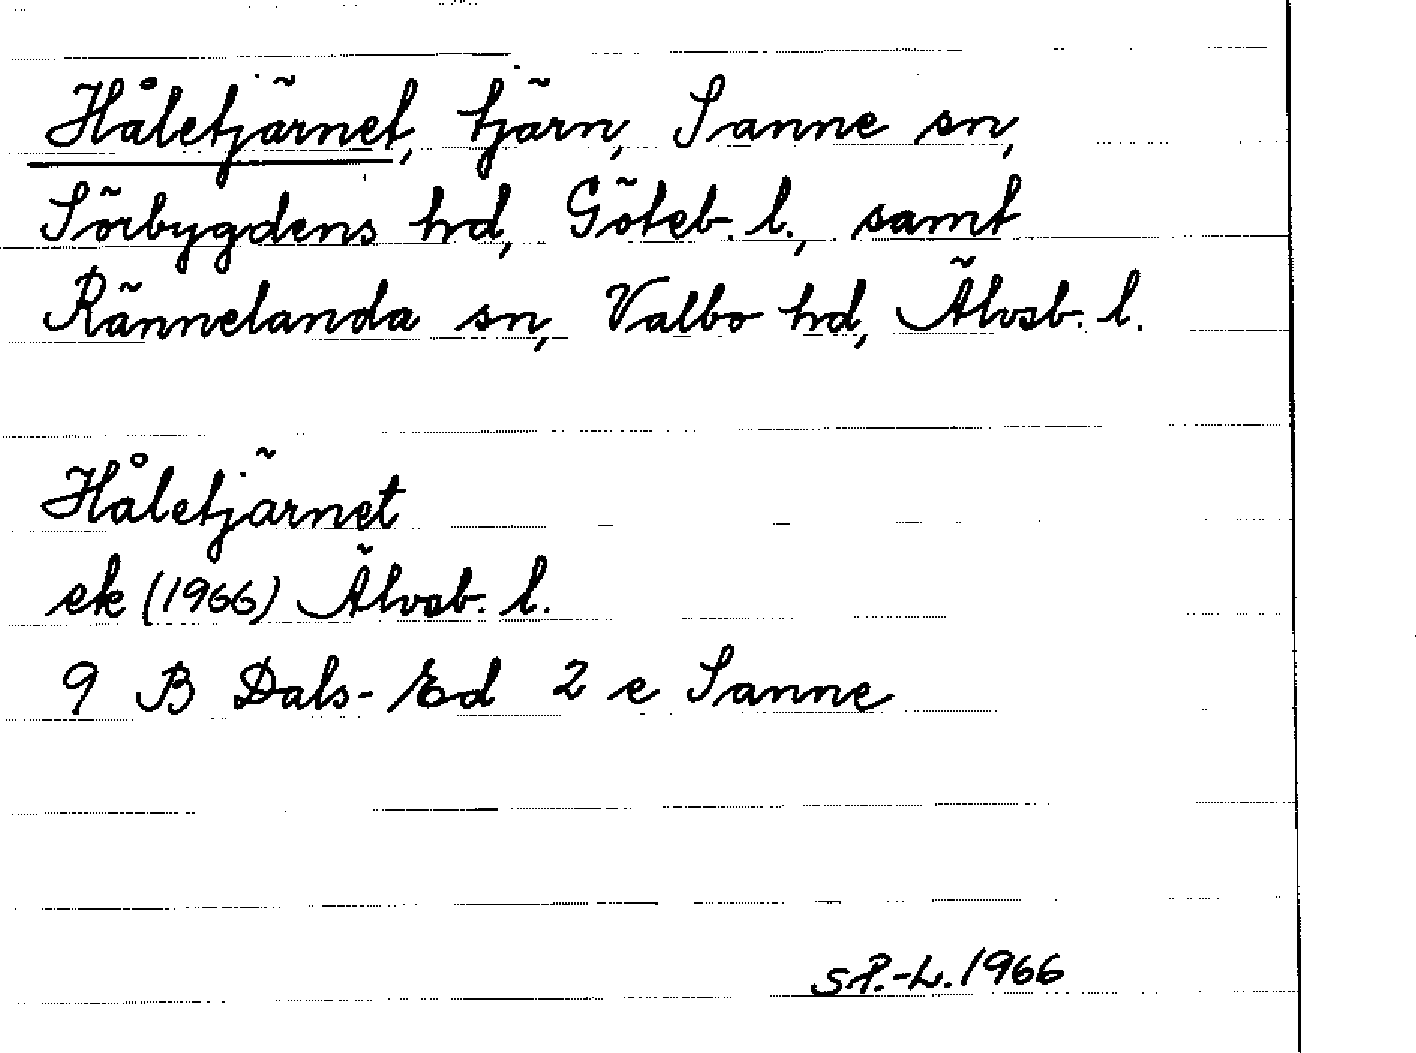 Håletjärnet, tjärn, Sanne sn,
Sörbygdens hd, Göteb. l., samt
Rännelanda sn, Valbo hd, Älvsb. l.
Håletjärnet
ek (1966) Älvsb. l.
9 B Dals-Ed 2 e Sanne
SP.-L. 1966